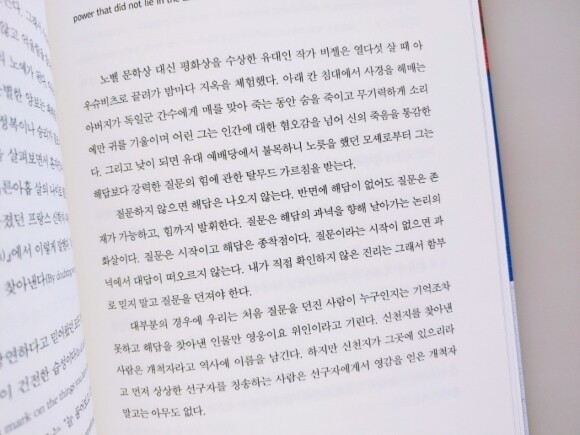 power that did not lie in the
노벨 문학상 대신 평화상을 수상한 유대인 작가 비젤은 열다섯 살 때 아
우슈비츠로 끌려가 밤마다 지옥을 체험했다. 아래 칸 침대에서 사경을 헤매는
아버지가 독일군 간수에게 매를 맞아 죽는 동안 숨을 죽이고 무기력하게 소리
에만 귀를 기울이며 어린 그는 인간에 대한 혐오감을 넘어 신의 죽음을 통감한
다. 그리고 낮이 되면 유대 예배당에서 불목하니 노릇을 했던 모셰로부터 그는
해답보다 강력한 질문의 힘에 관한 탈무드 가르침을 받는다.
질문하지 않으면 해답은 나오지 않는다. 반면에 해답이 없어도 질문은 존
재가 가능하고, 힘까지 발휘한다. 질문은 해답의 과녁을 향해 날아가는 논리의
화살이다. 질문은 시작이고 해답은 종착점이다. 질문이라는 시작이 없으면 과
녁에서 대답이 떠오르지 않는다. 내가 직접 확인하지 않은 진리는 그래서 함부
로 믿지 말고 질문을 던져야 한다.
대부분의 경우에 우리는 처음 질문을 던진 사람이 누구인지는 기억조차
못하고 해답을 찾아낸 인물만 영웅이요 위인이라고 기린다. 신천지를 찾아낸
사람은 개척자라고 역사에 이름을 남긴다. 하지만 신천지가 그곳에 있으리라
고 먼저 상상한 선구자를 칭송하는 사람은 선구자에게서 영감을 얻은 개척자
말고는 아무도 없다.